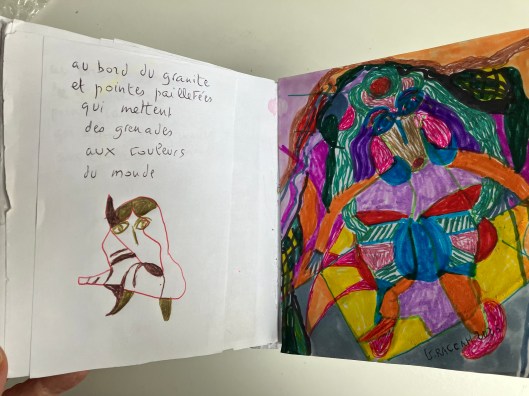 au bord du granite
et pointes pailletées
qui mettent
des grenades
aux couleurs
du monde